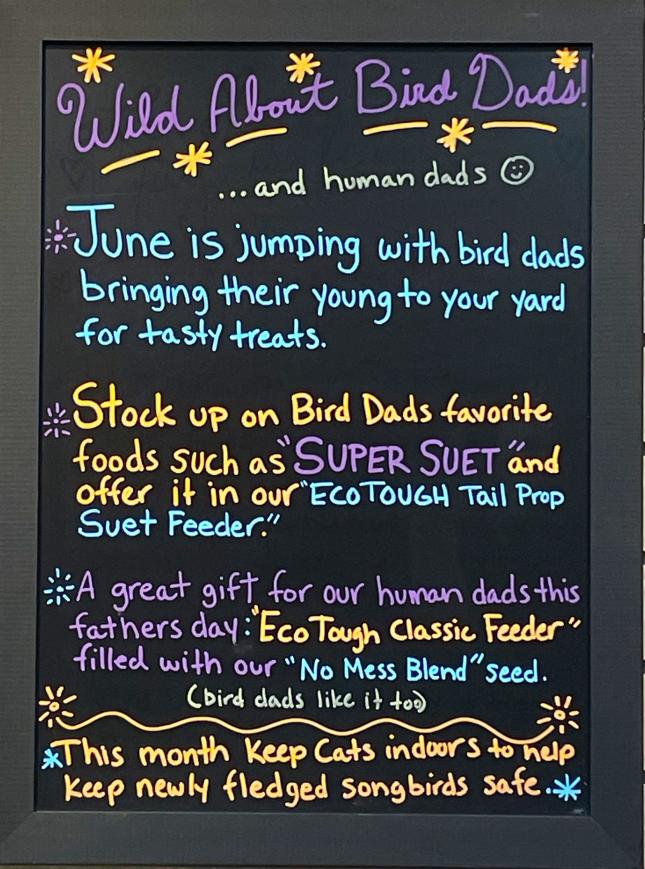 Wild About Bird Dads!
...and human dads ☺
June is jumping with bird dads
bringing their young to your yard
for tasty treats.
Stock up on Bird Dads favorite
foods such as "SUPER SUET" and
offer it in our "ECOTOUGH Tail Prop
Suet Feeder."
A great gift for our human dads this
fathers day: "EcoTough Classic Feeder"
filled with our "No Mess Blend" seed.
(bird dads like it too)
This month Keep Cats indoors to help
Keep newly fledged songbirds safe.